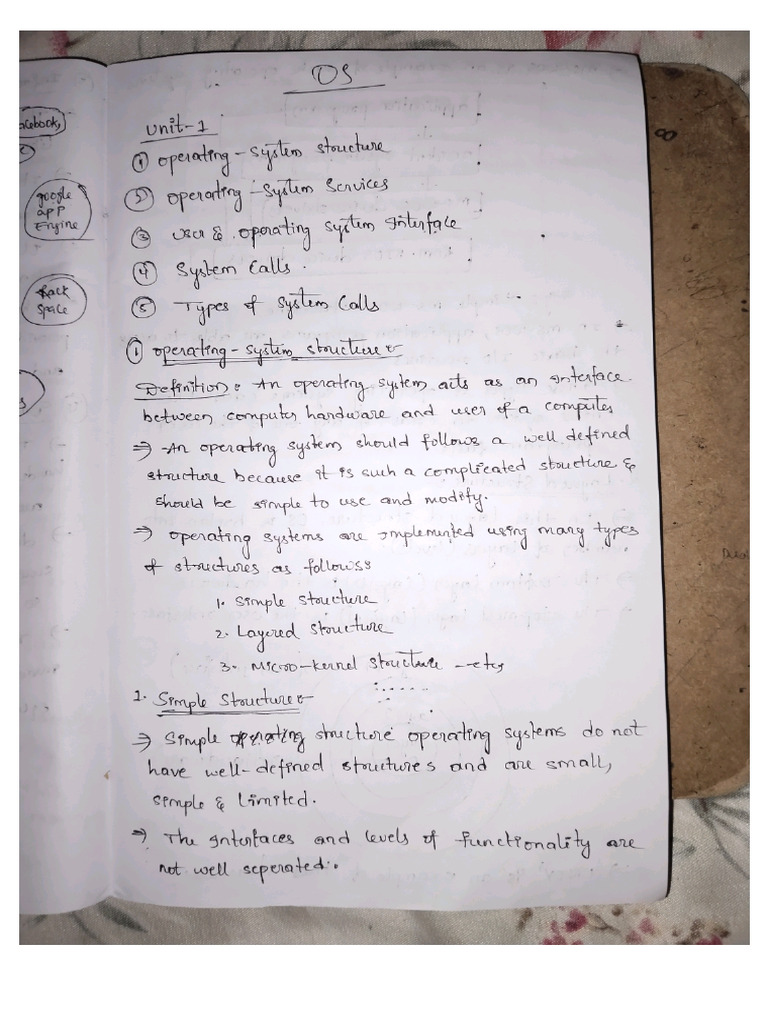 OS
Unit-1
① Operating-System Structure
② Operating-System Services
③ User & Operating System Interface
④ System Calls.
⑤ Types of System Calls
① Operating-System Structure:-
Definition: An operating system acts as an Interface
between computer hardware and user of a computer
⇒ An operating system should follows a well defined
structure because it is such a complicated structure &
should be simple to use and modify.
⇒ Operating systems are Implemented using many types
of structures as follows:
1. Simple Structure
2. Layered Structure
3. Micro-kernel Structure -etc,
1. Simple Structure:-
⇒ Simple structure operating systems do not
have well-defined structures and are small,
simple & limited.
⇒ The Interfaces and levels of functionality are
not well seperated.
acebook,
google
app
Engine
Rack
Space